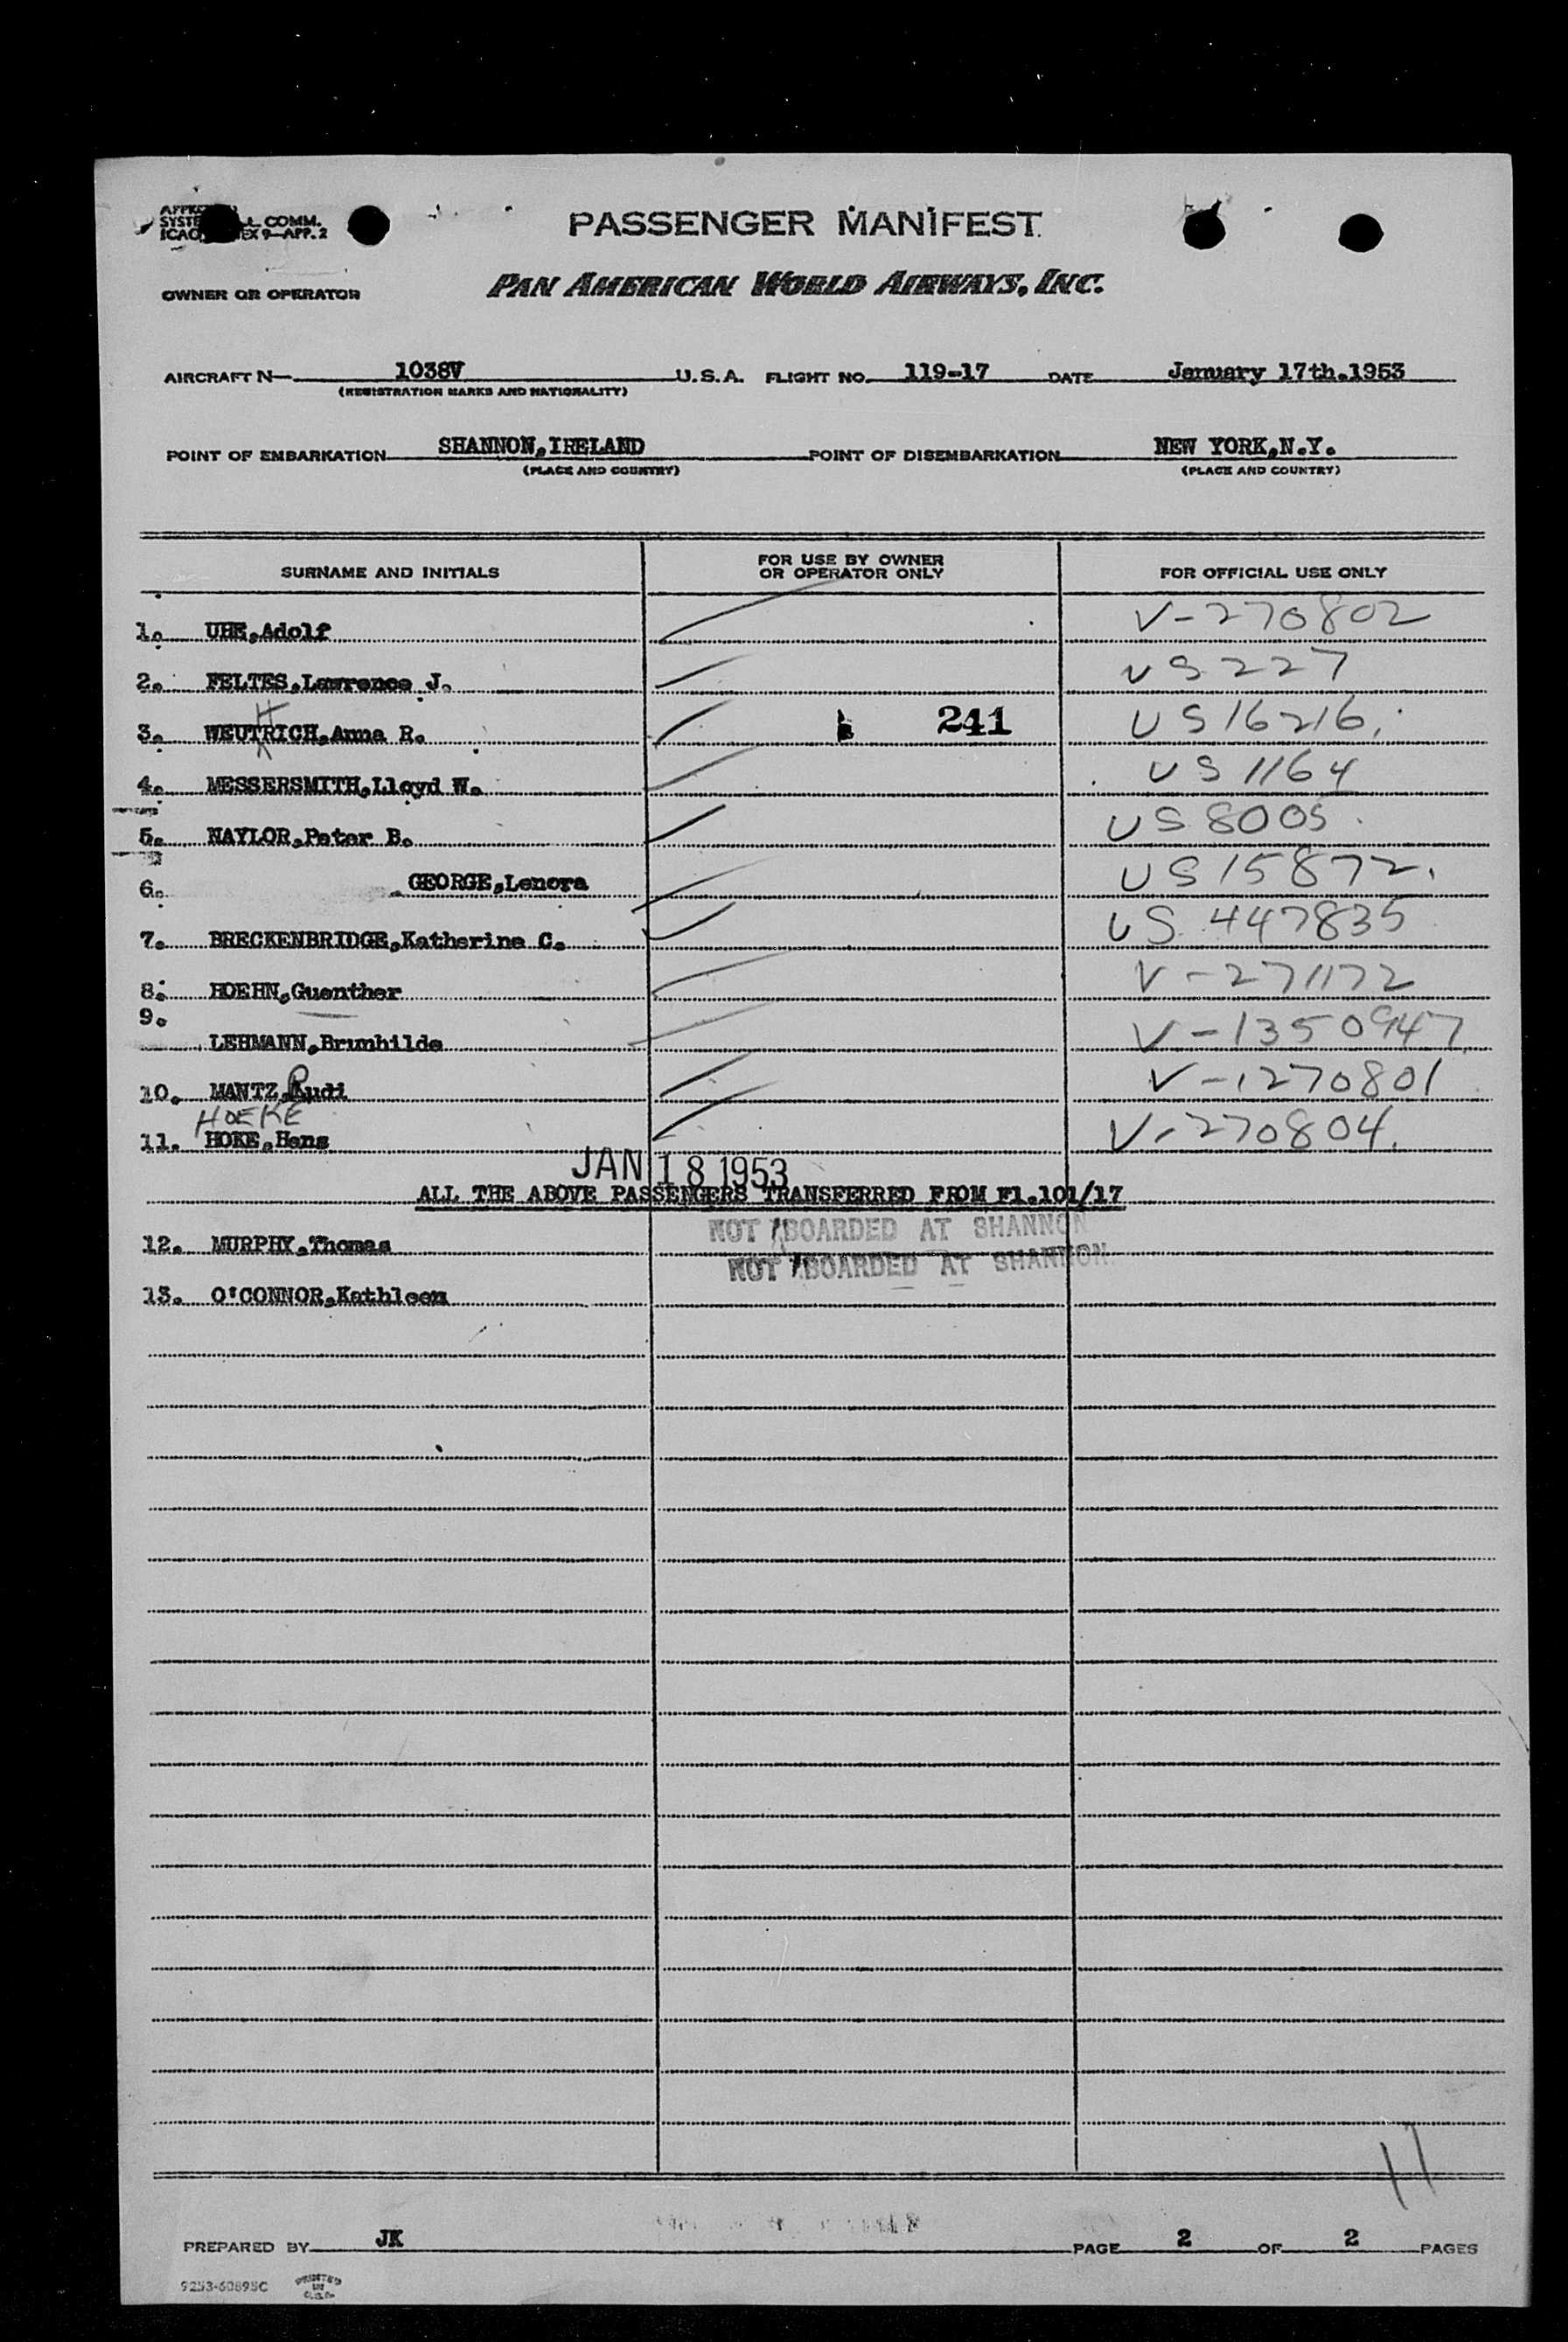 PASSENGER MANIFEST
L COMM.
ICAO EX 9—APP. 2
OWNER OR OPERATOR PAN AMERICAN WORLD AIRWAYS, INC.
AIRCRAFT N— 1038V U.S.A. FLIGHT NO. 119-17 DATE January 17th.1953
(REGISTRATION MARKS AND NATIONALITY)
POINT OF EMBARKATION SHANNON, IRELAND POINT OF DISEMBARKATION NEW YORK, N.Y.
(PLACE AND COUNTRY) (PLACE AND COUNTRY)
SURNAME AND INITIALS FOR USE BY OWNER OR OPERATOR ONLY FOR OFFICIAL USE ONLY
1. UHE, Adolf V-270802
2. FELTES, Lawrence J. US 227
H
3. WEUTRICH, Anna R. 241 US 16216.
4. MESSERSMITH, Lloyd W. US 1164
5. NAYLOR, Peter B. US 8005
6. GEORGE, Lenora US 15872.
7. BRECKENBRIDGE, Katherine C. US 447835
8. HOEHN, Guenther V-271172
9.
LEHMANN, Brunhilde V-1350947
10. MANTZ, Rudi V-1270801
HOEKE
11. HOKE, Hans V-270804.
JAN 18 1953
ALL THE ABOVE PASSENGERS TRANSFERRED FROM Fl.101/17
NOT BOARDED AT SHANNON
12. MURPHY, Thomas
NOT BOARDED AT SHANNON
13. O'CONNOR, Kathleen
11
PREPARED BY JK PAGE 2 OF 2 PAGES
9253-60895C PRINTED IN